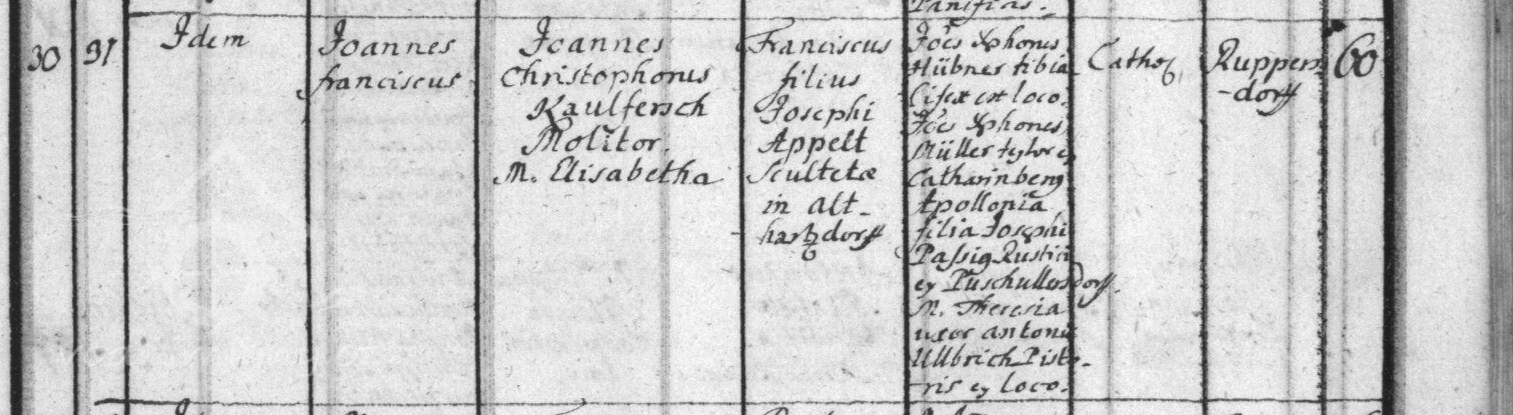 Panificis.
30
91
Idem
Joannes
franciscus
Joannes
Christophorus
Kaulfersch
Molitor.
M. Elisabetha
Franciscus
filius
Josephi
Appelt
Scultetæ
in Alt-
hartzdorff
Joes Xphorus
Hübner tibia
loco.
Joes Xphorus
Müller
Catharinberg
Apollonia
filia Josephi
Passig Rustici
ex Püschullersdorff.
M. Theresia
uxor Antonii
Ullbrich Pisto-
ris ex loco.
Cathol
Ruppers-
-dorff
60